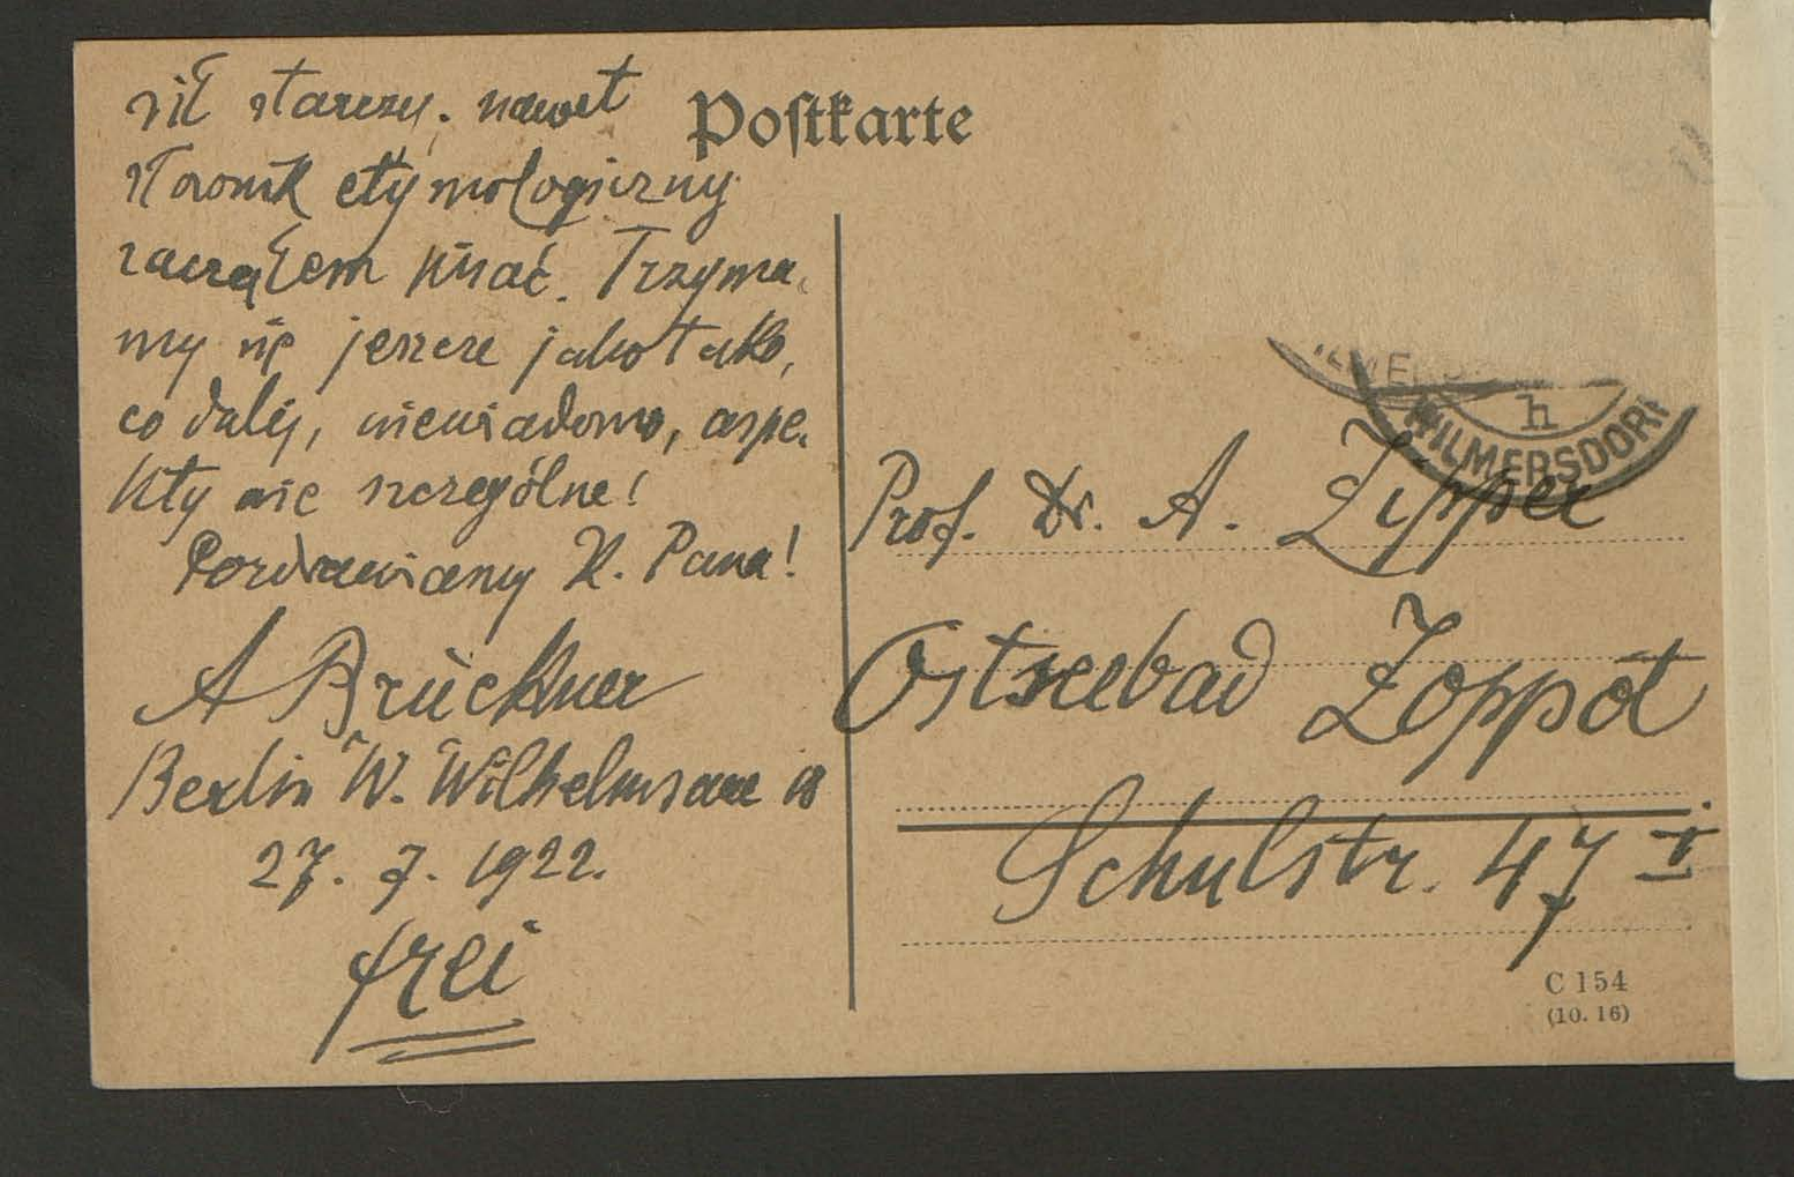 sił starczy. nawet
słownik etymologiczny
zacząłem pisać. Trzyma-
my się jeszcze jako tako,
co dalej, niewiadomo, aspe-
kty nie szczególne!
Pozdrawiamy K. Pana!
A Brückner
Berlin W. Wilhelmsaue
27. 7. 1922.
frei
Postkarte
h
WILMERSDORF
Prof. Dr. A. Zipper
Ostseebad Zoppot
Schulstr. 47 I
C 154
(10. 16)